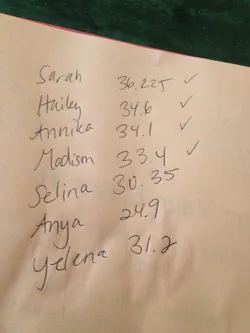 Sarah 36.225 ✓
Hailey 34.6 ✓
Annika 34.1 ✓
Madison 33.4 ✓
Selina 30.35
Anya 24.9
Yelena 31.2